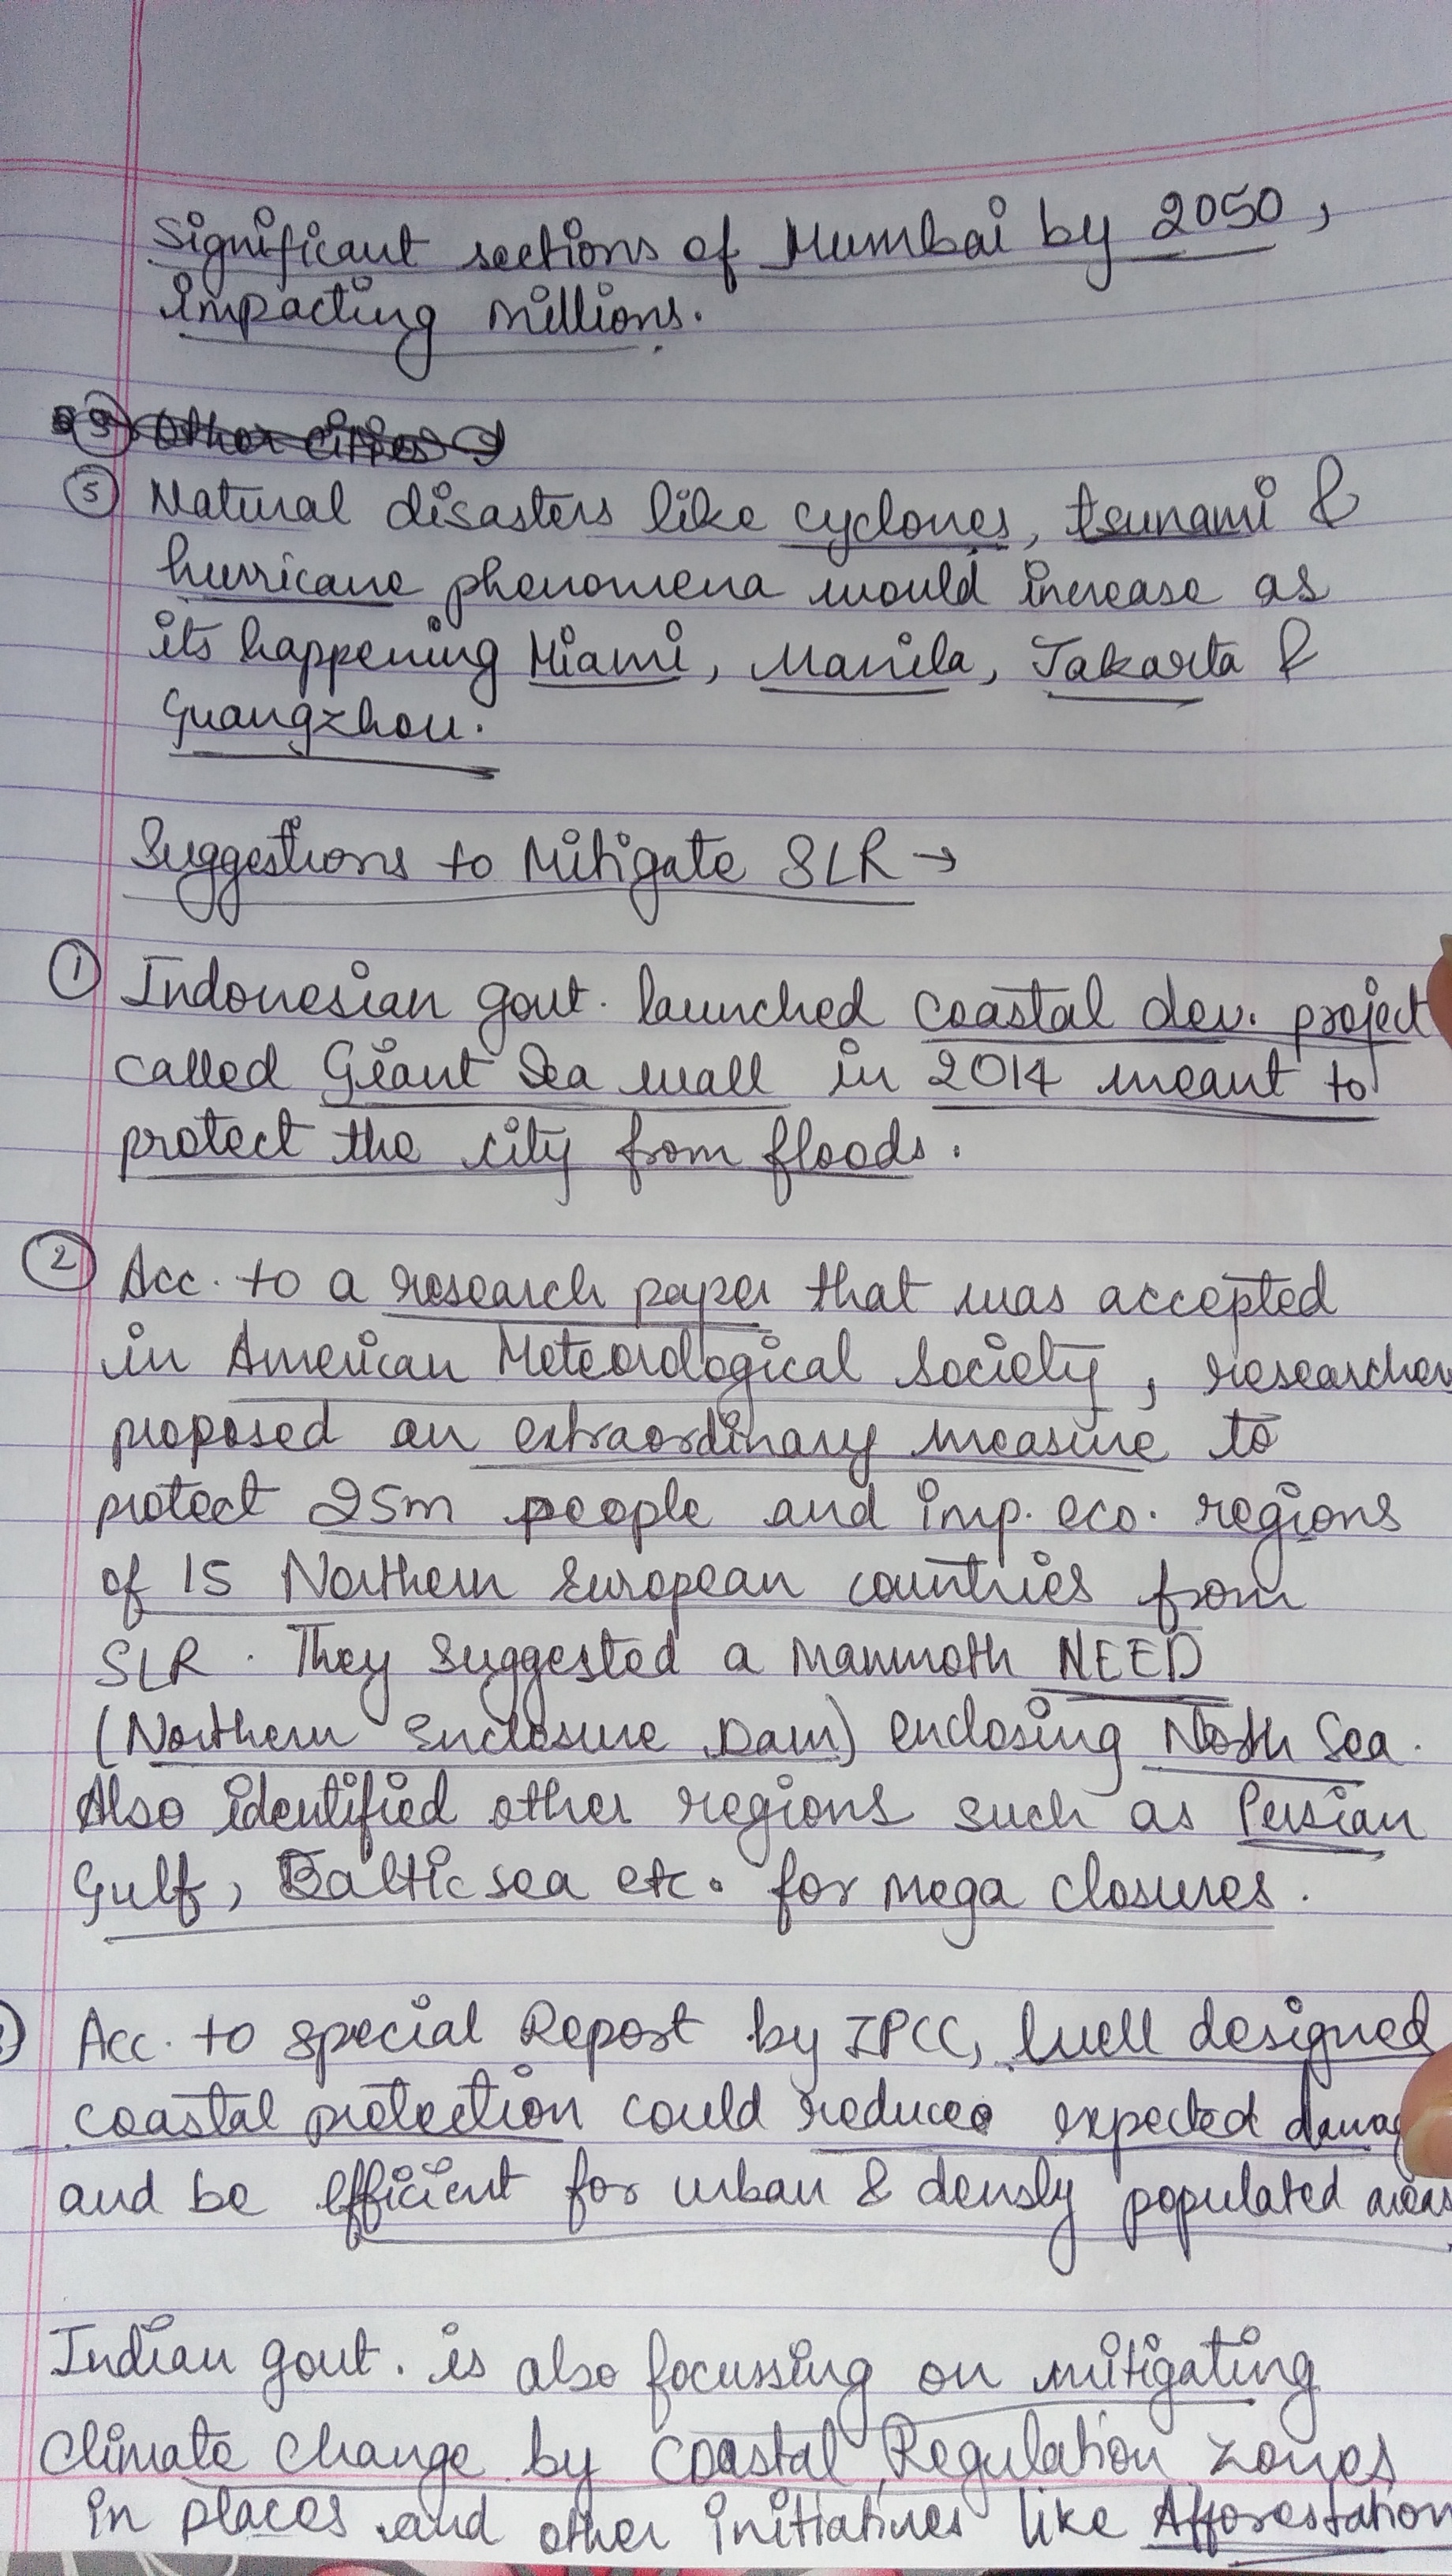 significant sections of Mumbai by 2050,
impacting millions.
Other cities
⑤ Natural disasters like cyclones, tsunami &
hurricane phenomena would increase as
its happening Miami, Manila, Jakarta &
Guangzhou.
Suggestions to Mitigate SLR →
① Indonesian govt. launched coastal dev. project
called Giant Sea wall in 2014 meant to
protect the city from floods.
② Acc. to a research paper that was accepted
in American Meteorological Society, researcher
proposed an extraordinary measure to
protect 25m people and imp. eco. regions
of 15 Northern European countries from
SLR. They suggested a mammoth NEED
(Northern Enclosure Dam) enclosing North Sea.
Also identified other regions such as Persian
Gulf, Baltic sea etc. for mega closures.
Acc. to special Report by IPCC, well designed
coastal protection could reduce expected damag
and be efficient for urban & densly populated areas
Indian govt. is also focussing on mitigating
Climate change by Coastal Regulation zones
in places and other initiatives like Afforestation